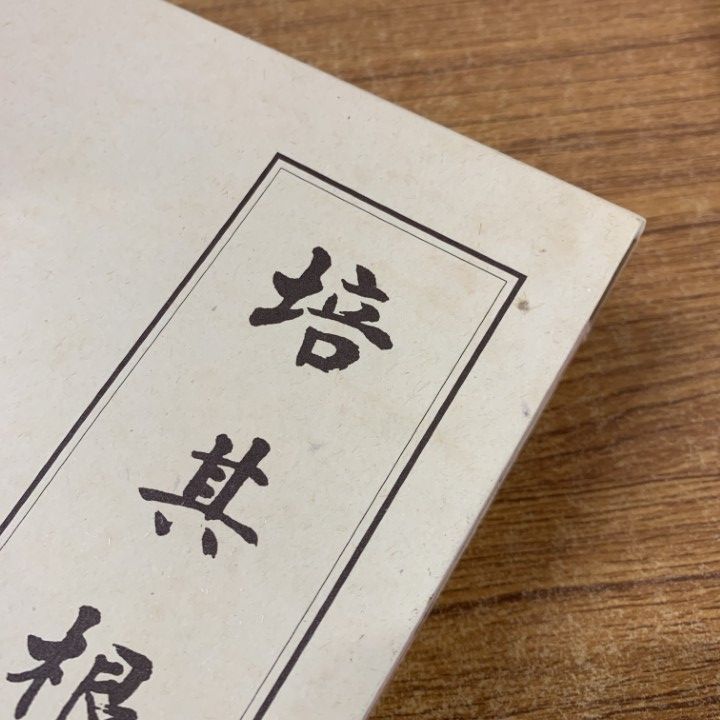 培其根